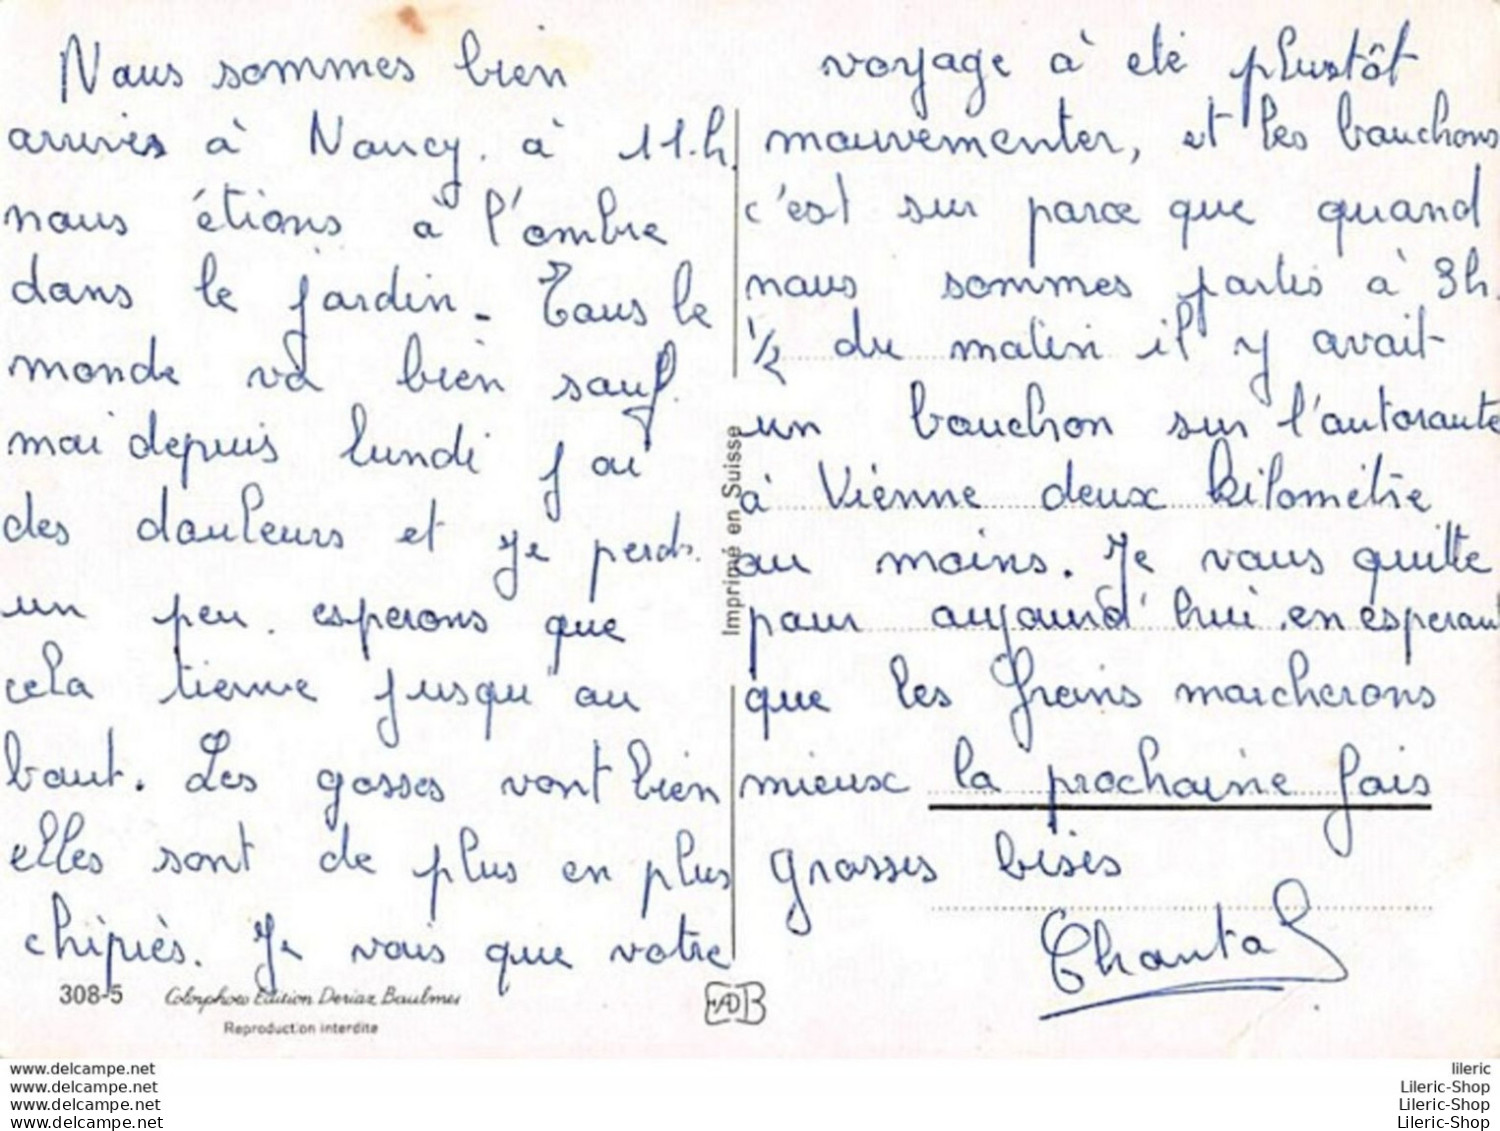 Nous sommes bien
arrivés à Nancy. à 11.h.
nous étions à l'ombre
dans le jardin - Tous le
monde va bien sauf.
moi depuis lundi j'ai
des douleurs et je perds.
un peu. esperons que
cela tienne jusqu'au
bout. Les gosses vont bien
elles sont de plus en plus
chipiès. Je vois que votre
308-5 Colorphoto Edition Deriaz Baulmes
Reproduction interdite
Imprimé en Suisse
voyage à eté plustôt
mouvementer, et les bouchons
c'est sur parce que quand
nous sommes partis à 3h.
1/2 du matin il y avait
un bouchon sur l'autoroute
à Vienne deux kilomètre
au moins. Je vous quitte
pour aujourd'hui. en esperant
que les freins marcherons
mieux la prochaine fois
grosses bises
Chantal
www.delcampe.net
www.delcampe.net
www.delcampe.net
www.delcampe.net
lileric
Lileric-Shop
Lileric-Shop
Lileric-Shop